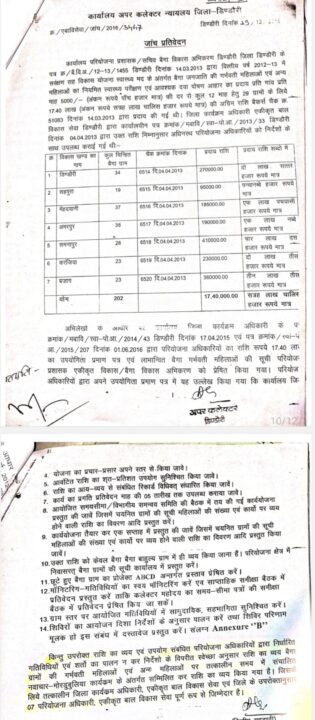 कार्यालय अपर कलेक्टर न्यायालय जिला-डिण्डौरी
डिण्डौरी दिनांक
जांच प्रतिवेदन
कार्यालय परियोजना प्रशासक/सचिव बैगा विकास अभिकरण डिण्डौरी जिला डिण्डौरी के
पत्र क्र./बै.वि.अ./12-13/1455 डिण्डौरी दिनांक 14.03.2013 द्वारा वित्तीय वर्ष 2012-13 में
संरक्षण सह विकास योजना स्वास्थ्य मद के अंतर्गत बैगा जनजाति की गर्भवती महिलाओं एवं अन्य
महिलाओं का नियमित स्वास्थ्य परीक्षण एवं आवश्यक दवा पोषण आहार का प्रदाय प्रति गांव प्रति
माह 5000/- (अंकन रूपये पाँच हजार मात्र) की दर से कुल 12 माह हेतु 29 ग्रामो के लिये
17.40 लाख (अंकन रूपये सत्रह लाख चालिस हजार रूपये मात्र) की अग्रिम राशि बैंकर्स चैक क्र.
51083 दिनांक 14.03.2013 द्वारा प्रदाय की गई थी। जिला कार्यक्रम अधिकारी एकीकृत बाल
विकास सेवा डिण्डौरी द्वारा कार्यालयीन पत्र क्रमांक/मबावि/स्वा-पो.आ/2013/33 डिण्डौरी
दिनांक 04.04.2013 द्वारा उक्त राशि निम्नानुसार अधिनस्थ परियोजना अधिकारीयों को निर्देशों के
साथ उपलब्ध कराई गई थी:-
क्र विकास खण्ड का नाम कुल चिन्हित बैगा ग्राम चेक क्रमांक/दिनांक प्रदाय राशि प्रदाय राशि शब्दों में
1 डिण्डौरी 34 6514 दि.04.04.2013 270000.00 दो लाख सत्तर हजार रूपये मात्र
2 शहपुरा 19 6515 दि.04.04.2013 95000.00 पन्चानबे हजार रूपये मात्र
3 मेंहदवानी 37 6516 दि.04.04.2013 185000.00 एक लाख पचयासी हजार रूपये मात्र
4 अमरपुर 36 6517 दि.04.04.2013 190000.00 एक लाख नब्बे हजार रूपये मात्र
5 समनापुर 28 6518 दि.04.04.2013 410000.00 चार लाख दस हजार रूपये मात्र
6 करंजिया 23 6519 दि.04.04.2013 230000.00 दो लाख तीस हजार रूपये मात्र
7 बजाग 23 6520 दि.04.04.2013 360000.00 तीन लाख तीस हजार रूपये मात्र
योग 202 17,40,000.00 सत्रह लाख चालिस हजार रूपये मात्र
अभिलेखों के आधार पर कार्यालय जिला कार्यक्रम अधिकारी के प
क्रमांक/मबावि/स्वा.-पो.आ./2014/43 डिण्डौरी दिनांक 17.04.2015 एवं पत्र क्रमांक
आ./2015/207 दिनांक 01.06.2016 द्वारा परियोजना अधिकारियों का राशि रूपये 17.40 ला
का उपयोगिता प्रमाण पत्र एवं लाभान्वित बैगा गर्भवती महिलाओं की सूची परियोज
प्रशासक एकीकृत विकास/बैगा विकास अभिकरण को प्रेषित किया गया। परियोज
अधिकारियों द्वारा अपने उपयोगिता प्रमाण पत्र में यह उल्लेख किया गया कि कार्यालय जि
अपर कलेक्टर
डिण्डौरी
10/12
4. योजना का प्रचार-प्रसार अपने स्तर से किया जावें।
5. आवंटित राशि का शत-प्रतिशत उपयोग सुनिश्चित किया जावें।
6. राशि का आय-व्यय से संबंधित रिकार्ड विधिवत संधारित किया जावें।
7. कार्य का प्रगति प्रतिवेदन माह की 05 तारीख तक उपलब्ध कराया जावे।
8. आयोजित समयसीमा/विभागीय समन्वय समिति की बैठक में तय की गई कार्ययोजना
प्रस्तुत की जावें जिसमें चयनित ग्रामों की सूची महिलाओं की संख्या एवं कार्यों पर व्यय
होने वाली राशि का विवरण आदि प्रस्तुत करें।
9. कार्ययोजना तैयार कर एक सप्ताह में प्रस्तुत की जावें जिसमें चयनित ग्रामों की सूची
महिलाओं की संख्या एवं कार्यों पर व्यय होने वाली राशि का विवरण आदि प्रस्तुत किया
जावें।
10. उक्त राशि को केवल बैगा बैगा बाहुल्य ग्राम में ही व्यय किया जाना हैं। परियोजना क्षेत्र में
निवासरत् बैगा ग्रामों की सूची कार्यालय में उपलब्ध हैं।
11. छूटे हुए बैगा ग्राम का प्रोजेक्ट ABCD अन्तर्गत प्रस्ताव प्रेषित करें।
12. मॉनिटरिंग-गतिविधियों का स्वयं मॉनिटरिंग करें एवं साप्ताहिक समीक्षा बैठक में
प्रतिवेदन प्रस्तुत करें ताकि कलेक्टर महोदय का समय-सीमा पत्रों की समीक्षा
बैठक में प्रतिवेदन प्रेषित किय जा सकें।
13. ग्राम स्तर पर आयोजित गतिविधियों में सामुदायिक, सहभागिता सुनिश्चित करें।
14. शिविरों का आयोजन दिशा निर्देशों के अनुसार पालन करें तथा शिविर परिणाम
मूलक हो इस संबंध में दस्तावेज प्रस्तुत करें। संलग्न Annexure "B"
किन्तु उपरोक्त राशि का व्यय एवं उपयोग संबंधित परियोजना अधिकारीयों द्वारा निर्धारित
गतिविधियों एवं शर्तो का पालन न कर निर्देशों के विपरीत स्वेच्छा अनुसार राशि का व्यय बैगा
ग्रामों की गर्भवती महिलाओं एवं अन्य महिलाओं पर तत्कालीन समय में संचालित
नवाचार-मोरडुबुलिया कार्यक्रम के अंतर्गत सम्मिलित कर राशि का व्यय किया गया है। जिसके
लिये तत्कालीन जिला कार्यक्रम अधिकारी, एकीकृत बाल विकास सेवा एवं जिले के उपरोक्तानुसार
07 परियोजना अधिकारी, एकीकृत बाल विकास सेवा पूर्ण रूप से जिम्मेदार है।